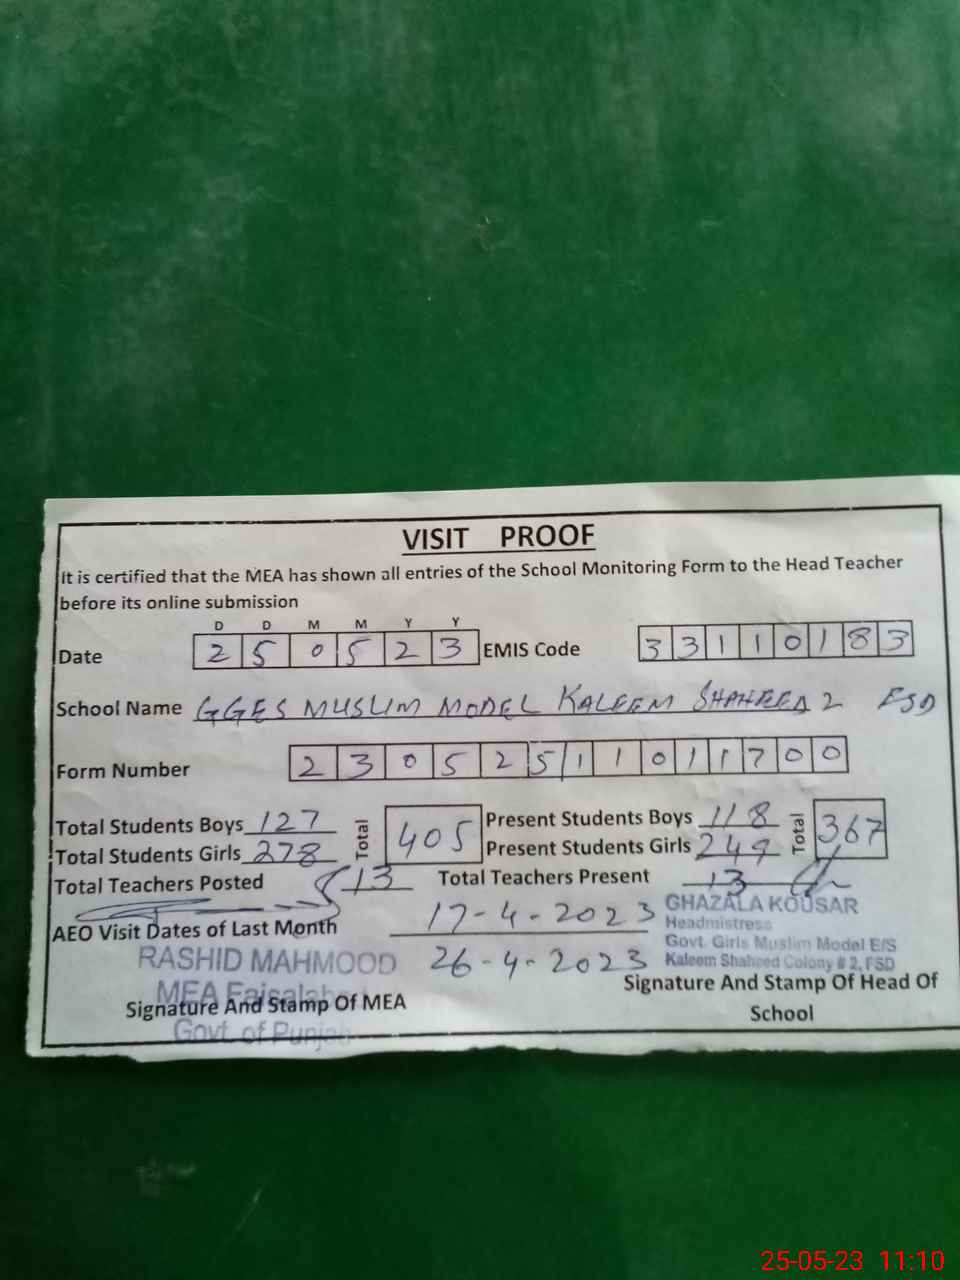 VISIT PROOF
It is certified that the MEA has shown all entries of the School Monitoring Form to the Head Teacher
before its online submission
D D M M Y Y
Date 2 5 0 5 2 3 EMIS Code 3 3 1 1 0 1 8 3
School Name GGES MUSLIM MODEL KALEEM SHAHEED 2 FSD
Form Number 2 3 0 5 2 5 1 1 0 1 1 7 0 0
Total Students Boys 127 Total 405 Present Students Boys 118 Total 367
Total Students Girls 278 Present Students Girls 249
Total Teachers Posted 13 Total Teachers Present 13
AEO Visit Dates of Last Month 17-4-2023
26-4-2023
GHAZALA KOUSAR
Headmistress
Govt. Girls Muslim Model E/S
Kaleem Shaheed Colony # 2, FSD
RASHID MAHMOOD
MEA Faisalabad
Govt. of Punjab
Signature And Stamp Of MEA
Signature And Stamp Of Head Of
School
25-05-23 11:10